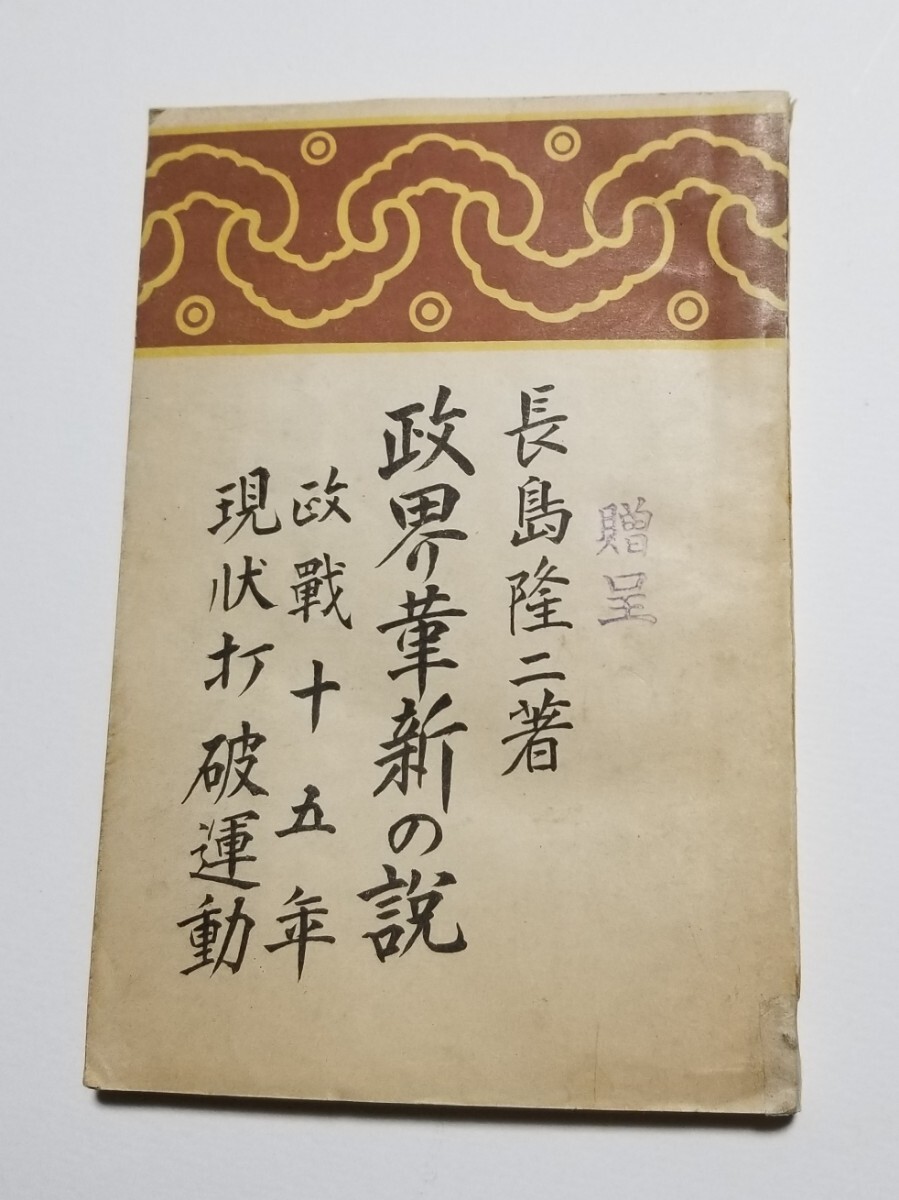 贈呈
長島隆二著
政界革新の説
政戰十五年
現状打破運動